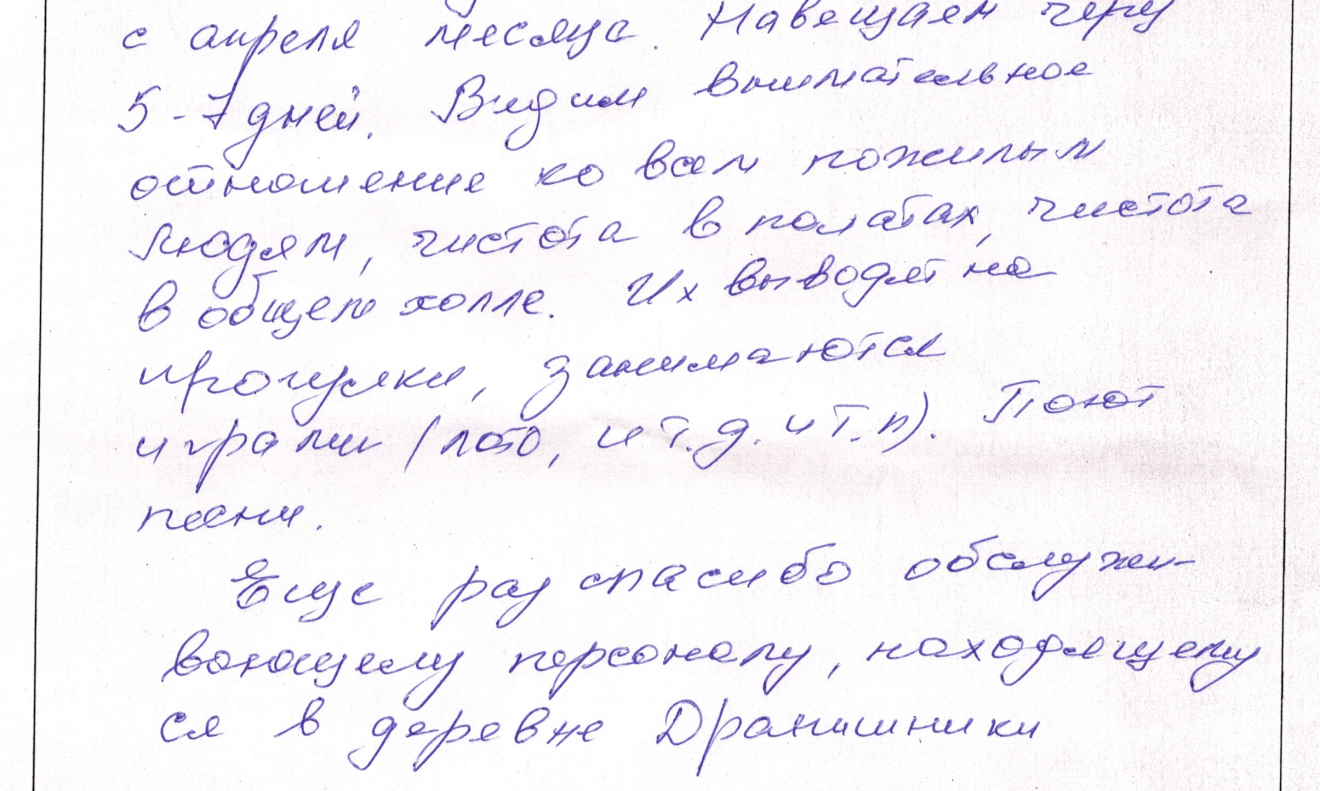 с апреля месяца. Навещаем через
5-7 дней. Видим внимательное
отношение ко всем пожилым
людям, чистота в палатах, чистота
в общем холле. Их выводят на
прогулки, занимаются
играми (лото, и т.д. и т.п). Поют
песни.
Еще раз спасибо обслужи-
вающему персоналу, находящему
ся в деревне Дранишники